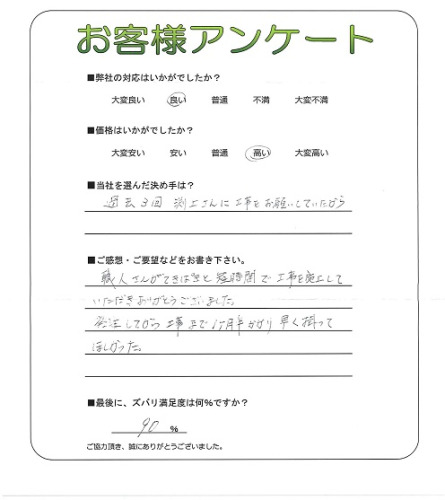 お客様アンケート
■弊社の対応はいかがでしたか?
大変良い 良い 普通 不満 大変不満
■価格はいかがでしたか?
大変安い 安い 普通 高い 大変高い
■当社を選んだ決め手は?
過去3回 渕上さんに工事をお願いしていたから
■ご感想・ご要望などをお書き下さい。
職人さんがてきぱきと短時間で工事を完工して
いただきありがとうございました。
発注してから工事まで1ヶ月半かかり早く掛って
ほしかった。
■最後に、ズバリ満足度は何%ですか?
90 %
ご協力頂き、誠にありがとうございました。